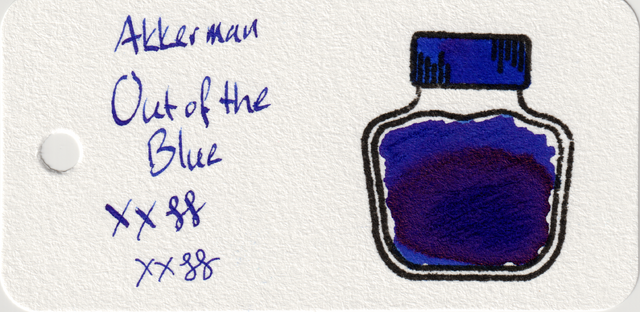 Akkerman
Out of the
Blue
xx88
xx88